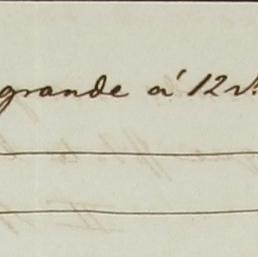 grande á 12 v.